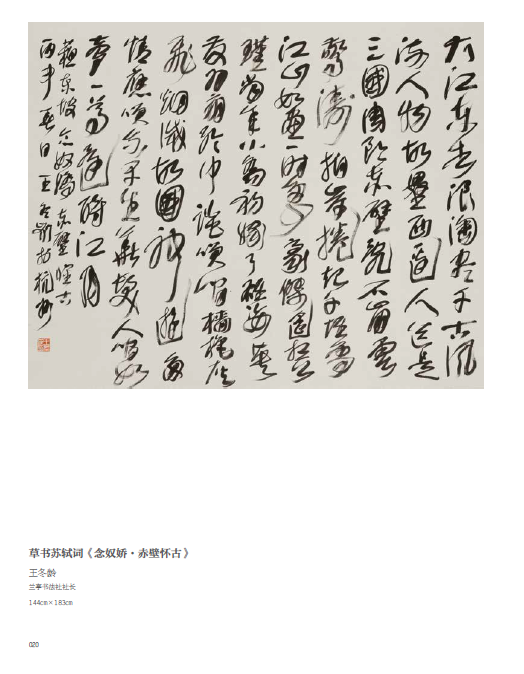 大江东去浪淘尽千古风
流人物故垒西边人道是
三國周郎赤壁乱石崩云
驚濤拍岸捲起千堆雪
江山如画一时多少豪傑遥想公
瑾当年小乔初嫁了雄姿英
发羽扇纶巾谈笑间樯橹灰
飞烟滅故國神遊多
情应笑我早生华发人间如
夢一尊還酹江月
蘇东坡念奴娇赤壁怀古
丙申夏日王冬齡於杭州
草书苏轼词《念奴娇·赤壁怀古》
王冬龄
兰亭书法社社长
144cm×183cm
020